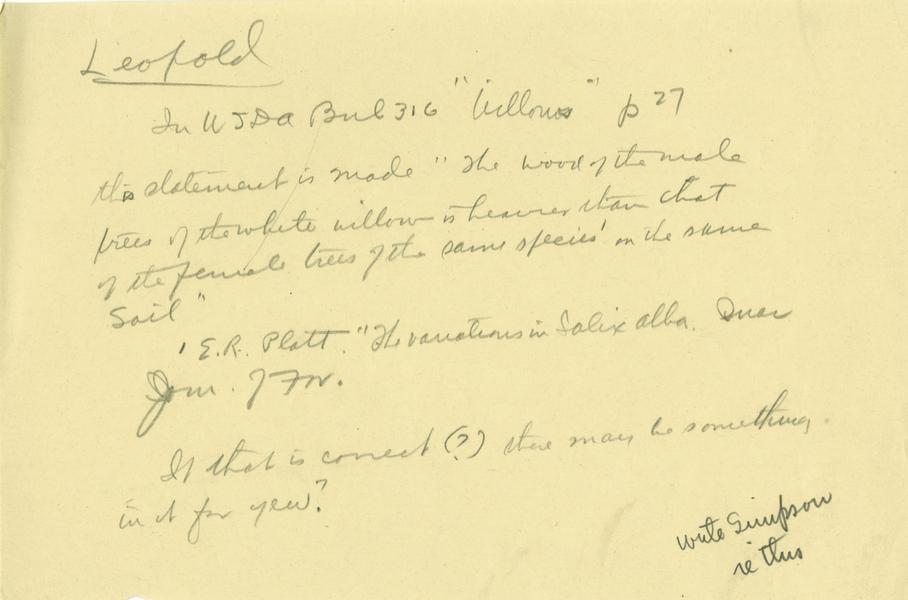 Leopold
In USDA Bul 316 "Willows" p 27
this statement is made "The wood of the male
trees of the white willow is heavier than that
of the female trees of the same species' on the same
soil"
' E.R. Platt. "The variations in Salix alba. Quar
Jour. of For.
If that is correct (?) there may be something
in it for you?
write Simpson
re this